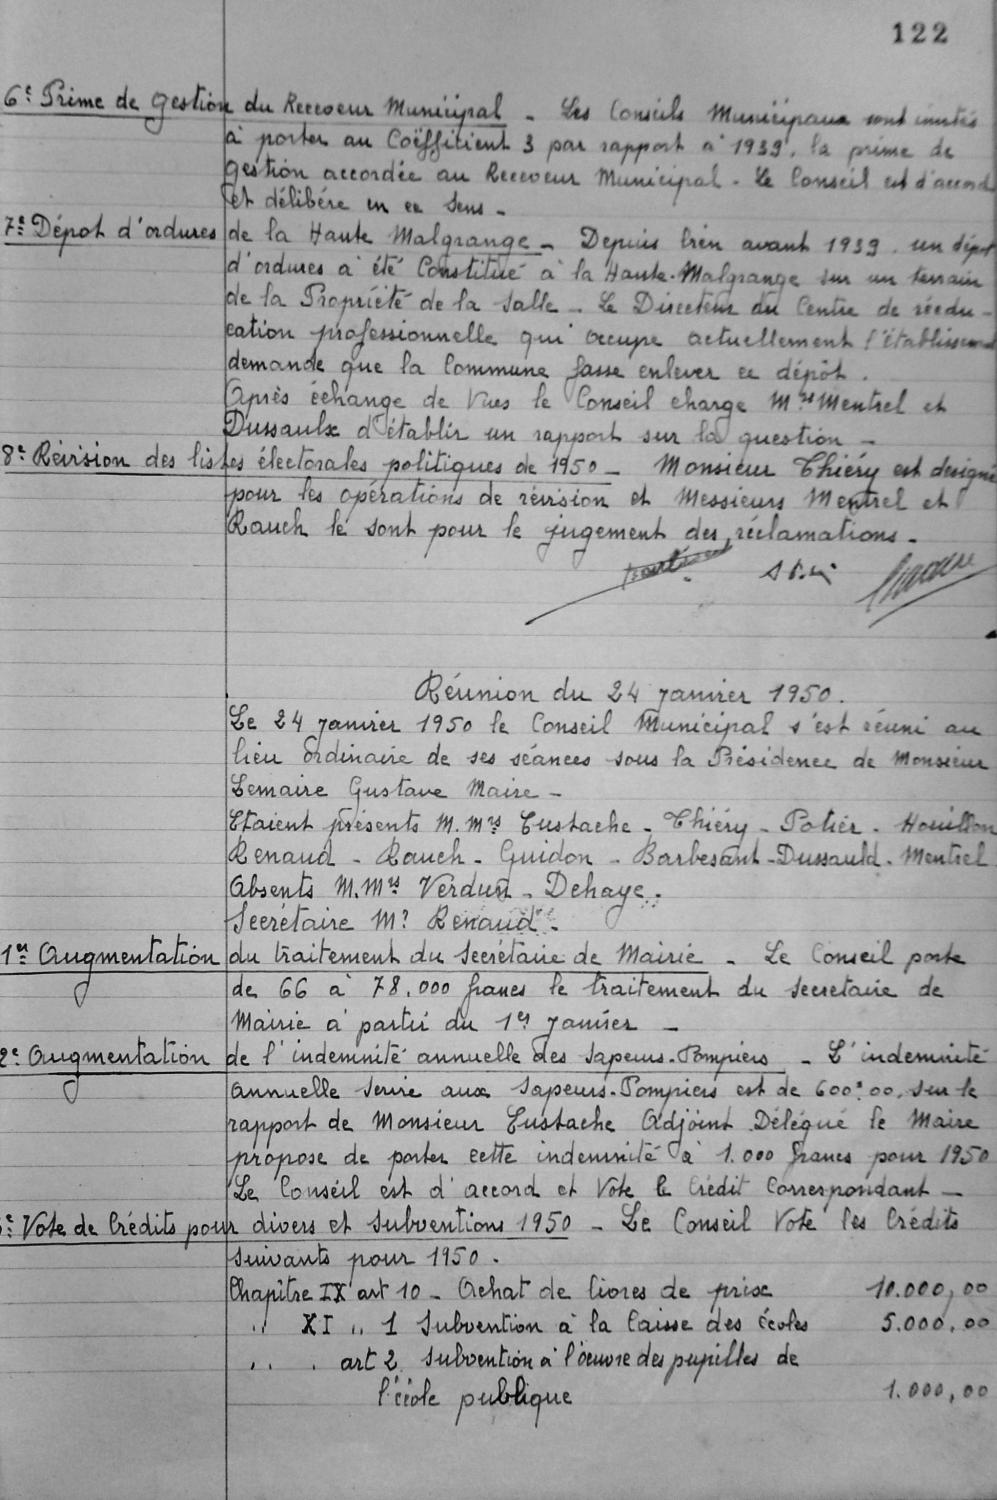 122
6e Prime de gestion du Receveur Municipal - Les Conseils Municipaux sont invités
à porter au Coëfficient 3 par rapport à 1939, la prime de
gestion accordée au Receveur Municipal - Le Conseil est d'accord
et délibère en ce sens -
7e Dépot d'ordures de la Haute Malgrange - Depuis bien avant 1939, un dépot
d'ordures à été Constitué à la Haute-Malgrange sur un terrain
de la Propriété de la Salle - Le Directeur du Centre de réédu-
cation professionnelle qui occupe actuellement l'établissement
demande que la Commune fasse enlever ce dépôt.
Après échange de vues le Conseil charge Mrs Mentrel et
Dussaulx d'établir un rapport sur la question -
8e Révision des listes électorales politiques de 1950 - Monsieur Thiéry est designé
pour les opérations de révision et Messieurs Mentrel et
Rauch le sont pour le jugement des réclamations -
Réunion du 24 Janvier 1950.
Le 24 Janvier 1950 le Conseil Municipal s'est réuni au
lieu ordinaire de ses séances sous la Présidence de Monsieur
Lemaire Gustave Maire -
Etaient présents M.Mrs Eustache - Thiéry - Potier - Houillon
Renaud - Rauch - Guidon - Barbesant - Dussauld - Mentrel
Absents M.Mrs Verdun - Dehaye.
Secrétaire Mr Renaud -
1er Augmentation du traitement du Secrétaire de Mairie - Le Conseil porte
de 66 à 78.000 francs le traitement du Secretaire de
Mairie à partir du 1er Janvier -
2e Augmentation de l'indemnité annuelle des Sapeurs-Pompiers - L'indemnité
annuelle servie aux Sapeurs-Pompiers est de 600f00, sur le
rapport de Monsieur Eustache Adjoint Délégué le Maire
propose de porter cette indemnité à 1.000 francs pour 1950
Le Conseil est d'accord et Vote le Crédit Correspondant -
e Vote de Crédits pour divers et Subventions 1950 - Le Conseil Vote les Crédits
suivants pour 1950 -
Chapître IX art 10 - Achat de livres de prix 10.000,00
" XI " 1 Subvention à la Caisse des écoles 5.000,00
" " art 2 Subvention à l'oeuvre des pupilles de
l'école publique 1.000,00